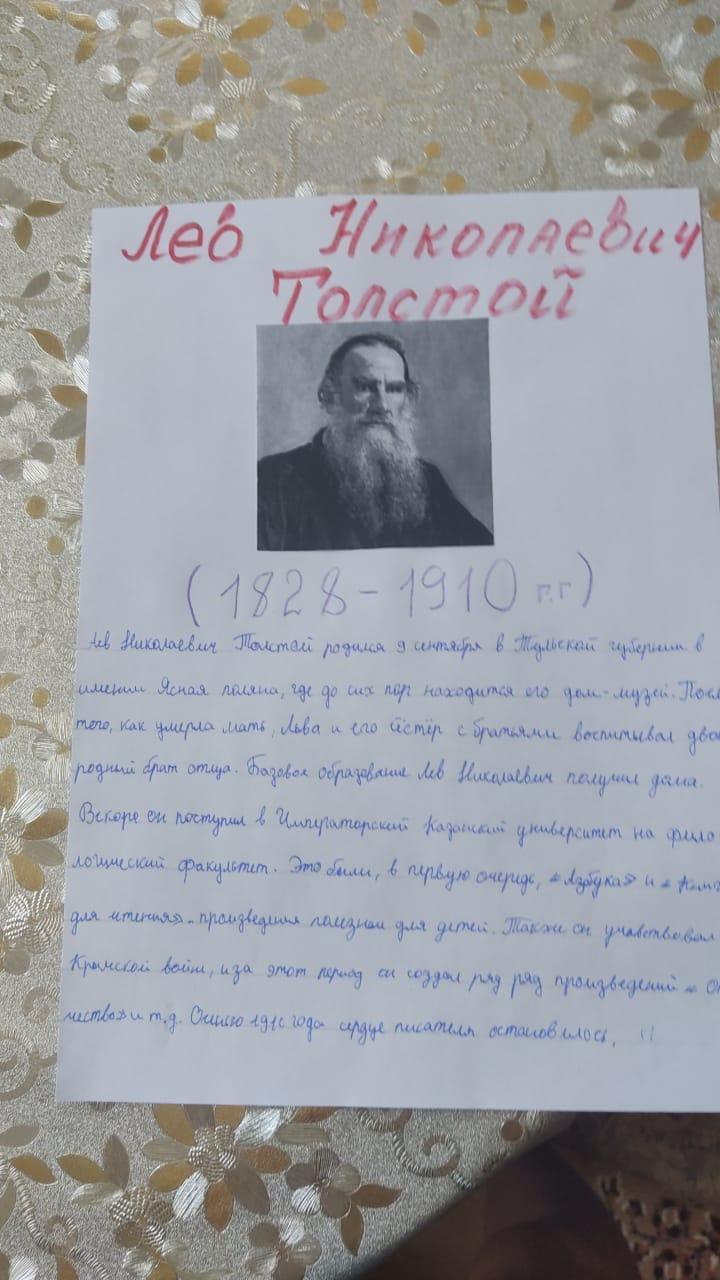 Лев Николаевич
Толстой
(1828-1910 г.г)
Лев Николаевич Толстой родился 9 сентября в Тульской губернии в
имении Ясная поляна, где до сих пор находится его дом-музей. Посл
того, как умерла мать, Льва и его сестёр с братьями воспитывал дво
родный брат отца. Базовое образование Лев Николаевич получил дома.
Вскоре он поступил в Императорский Казанский университет на фило
логический факультет. Это были, в первую очередь, «Азбука» и «
для чтения» - произведения полезном для детей. Также он участвовал
Крымской войне, и за этот период он создал ряд ряд произведений «О
чество» и т.д. Осенью 1910 года сердце писателя остановилось.